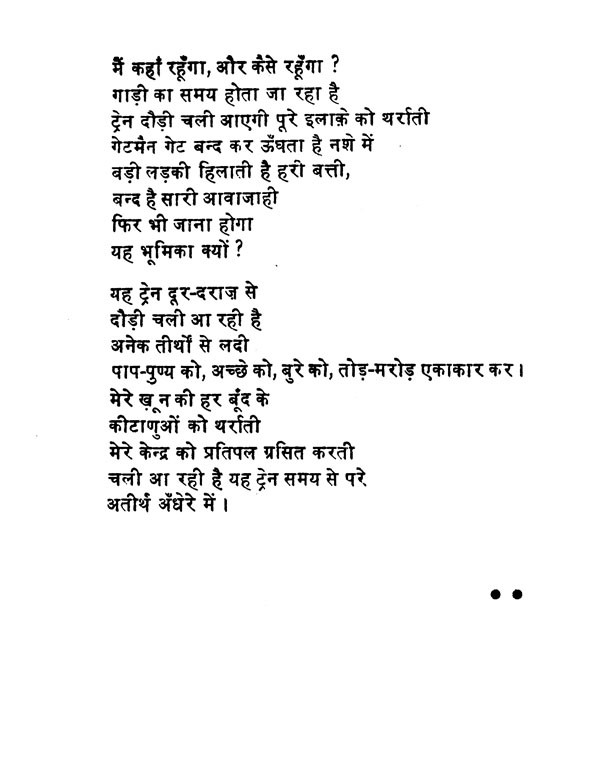 मैं कहाँ रहूँगा, और कैसे रहूँगा ?
गाड़ी का समय होता जा रहा है
ट्रेन दौड़ी चली आएगी पूरे इलाक़े को थर्राती
गेटमैन गेट बन्द कर ऊँघता है नशे में
बड़ी लड़की हिलाती है हरी बत्ती,
बन्द है सारी आवाजाही
फिर भी जाना होगा
यह भूमिका क्यों ?
यह ट्रेन दूर-दराज़ से
दौड़ी चली आ रही है
अनेक तीर्थों से लदी
पाप-पुण्य को, अच्छे को, बुरे को, तोड़-मरोड़ एकाकार कर।
मेरे ख़ून की हर बूँद के
कीटाणुओं को थर्राती
मेरे केन्द्र को प्रतिपल ग्रसित करती
चली आ रही है यह ट्रेन समय से परे
अतीर्थ अँधेरे में।